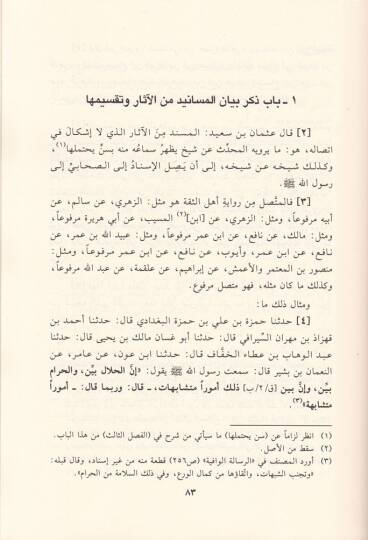 ١ ـ باب ذكر بيان المسانيد من الآثار وتقسيمها
[٢] قال عثمان بن سعيد: المسند مِنَ الآثار الذي لا إشكالَ في
اتصاله، هو: ما يرويه المحدّث عن شيخ يظهرُ سماعُه منه بسنٍّ يحتملها(١)،
وكذلك شيخـه عن شيخـه، إلى أن يَصِل الإسنادُ إلى الصحابيِّ إلى
رسول الله ﷺ.
[٣] فالمتَّصل مِن روايةِ أهل الثقة هو مثل: الزهري، عن سالم، عن
أبيه مرفوعاً، ومثل: الزهري، عن [ابن](٢) المسيب، عن أبي هريرة مرفوعاً،
ومثل: مالك، عن نافع، عن ابن عمر مرفوعاً، ومثل: عبيد الله بن عمر، عن
نافع، عن ابن عمر، وأيوب، عن نافع، عن ابن عمر مرفوعاً، ومثل:
منصور بن المعتمر والأعمش، عن إبراهيم، عن علقمة، عن عبد الله مرفوعاً،
وكذلك ما كان مثله، فهو متصل مرفوع.
ومثال ذلك ما:
[٤] حدثنا حمزة بن علي بن حمزة البغدادي قال: حدثنا أحمد بن
قهزاذ بن مهران السِّيرافي قال: حدثنا أبو غسان مالك بن يحيى قال: حدثنا
عبد الوهاب بن عطاء الخفَّاف قال: حدثنا ابن عون، عن عامر، عن
النعمان بن بشير قال: سمعت رسول الله ﷺ يقول: «إنَّ الحلال بيِّن، والحرام
بيِّن، وإنَّ بين [ق/٢/ب] ذلك أموراً متشابهات، ـ قال: وربما قال: ـ أموراً
متشابهة»(٣).
(١) انظر لزاماً عن (سن يحتملها) ما سيأتي من شرح في (الفصل الثالث) من هذا الباب.
(٢) سقط من الأصل.
(٣) أورد المصنف في «الرسالة الوافية» (ص٢٥٦) قطعة منه من غير إسناد، وقال قبله:
«وتجنب الشبهات، واتّقاؤها من كمال الورع، وفي ذلك السلامة من الحرام».
٨٣